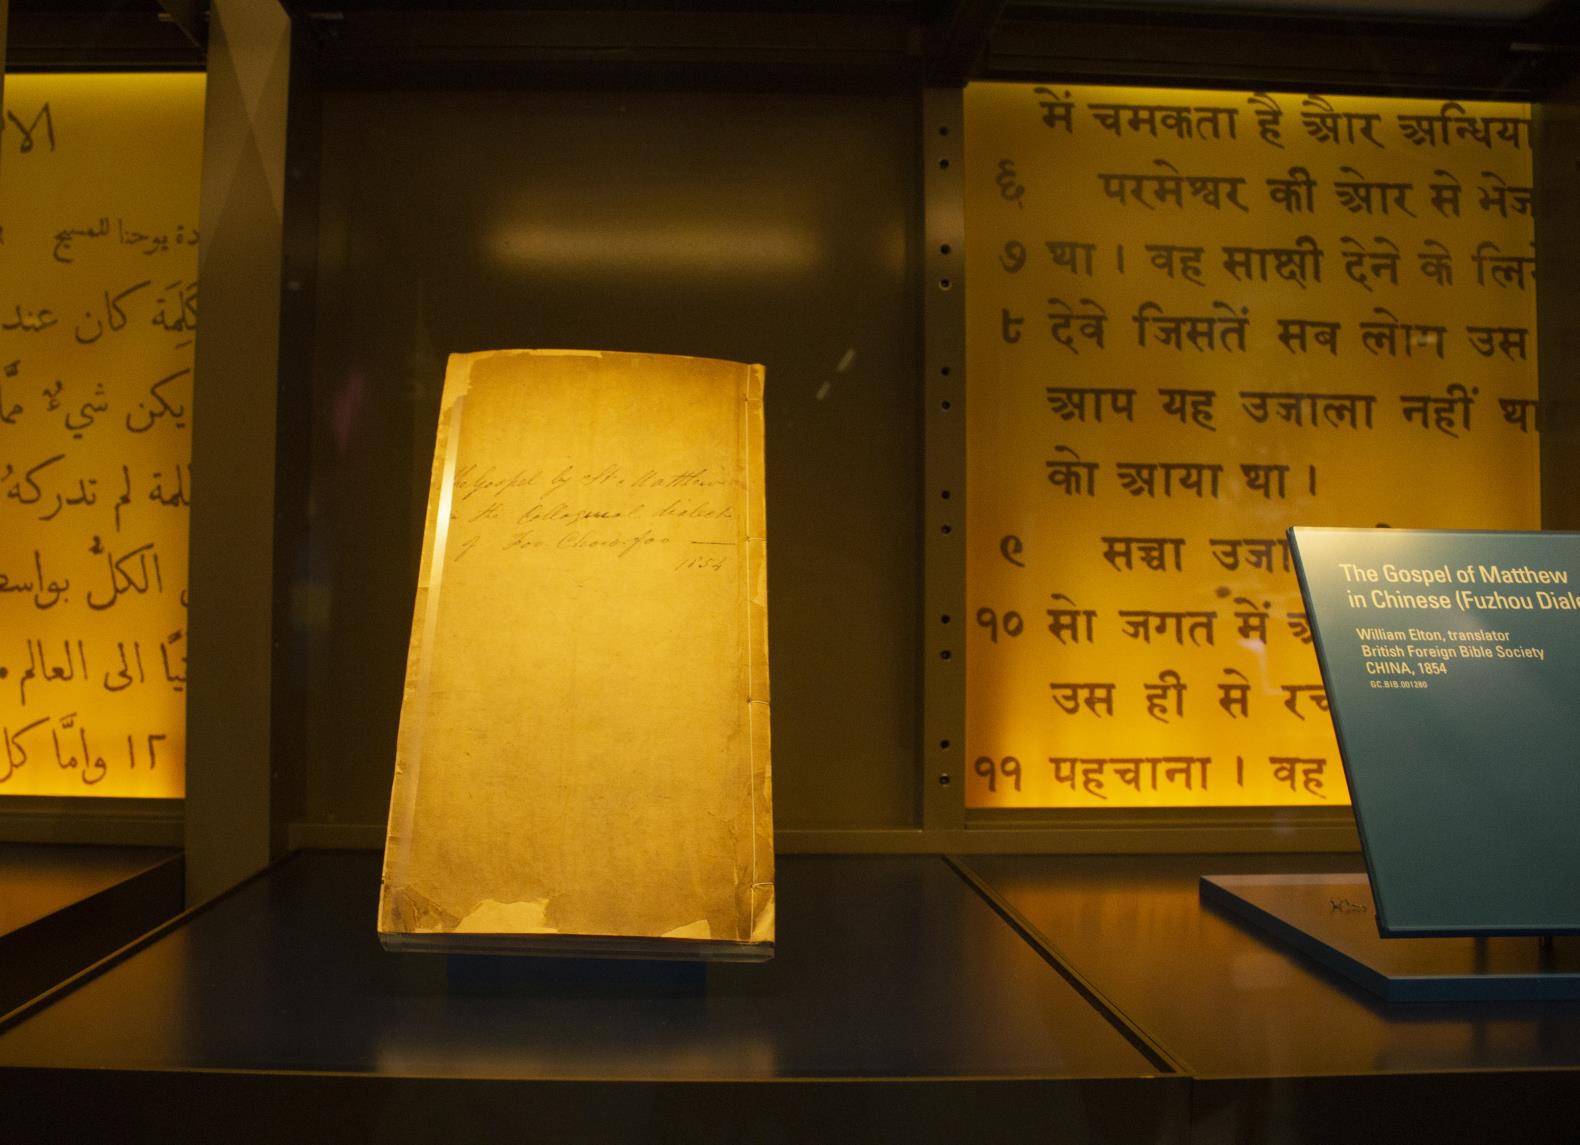 الا
دة يوحنا للمسيح
كَلِمَة كان عند
يكن شيءٌ ممَّا
لمة لم تدركهُ
الكلُّ بواسط
يَّا الى العالم
١٢ وامَّا كل
he Gospel by St. Matthew
n the Colloquial dialect
of Foo Chow foo —
1854
में चमकता है और अन्धिया
६ परमेश्वर की ओर से भेज
७ था । वह साक्षी देने के लिये
८ देवे जिसतें सब लोग उस
आप यह उजाला नहीं था
को आया था ।
९ सच्चा उजा
१० सो जगत में
उस ही से रच
११ पहचाना । वह
The Gospel of Matthew
in Chinese (Fuzhou Diale
William Elton, translator
British Foreign Bible Society
CHINA, 1854
GC.BIB.001280